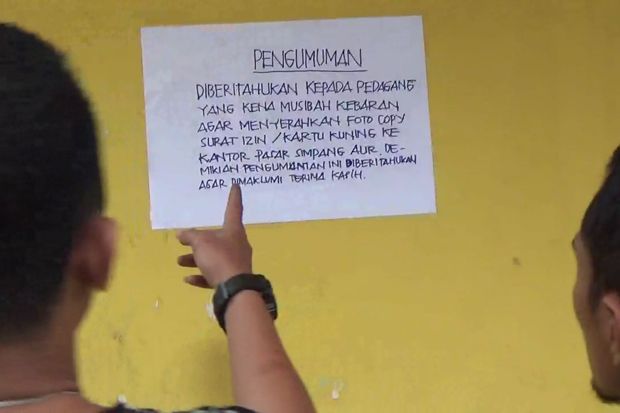 PENGUMUMAN
DIBERITAHUKAN KEPADA PEDAGANG
YANG KENA MUSIBAH KEBARAN
AGAR MENYERAHKAN FOTO COPY
SURAT IZIN / KARTU KUNING KE
KANTOR PASAR SIMPANG AUR. DE-
MIKIAN PENGUMANTAN INI DIBERITAHUKAN
AGAR DIMAKLUMI TERIMA KASIH.